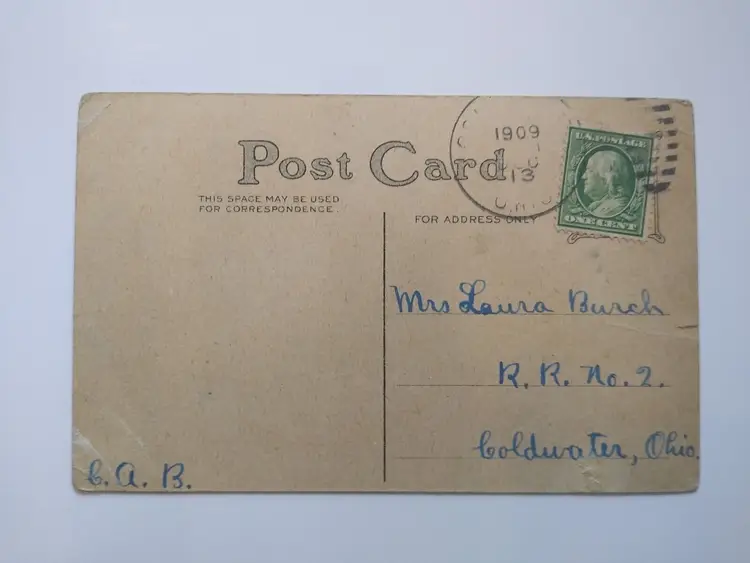 Post Card
THIS SPACE MAY BE USED
FOR CORRESPONDENCE.
FOR ADDRESS ONLY
1909
13
U.S. POSTAGE
ONE CENT
Mrs Laura Burch
R. R. No. 2.
Coldwater, Ohio.
C. A. B.